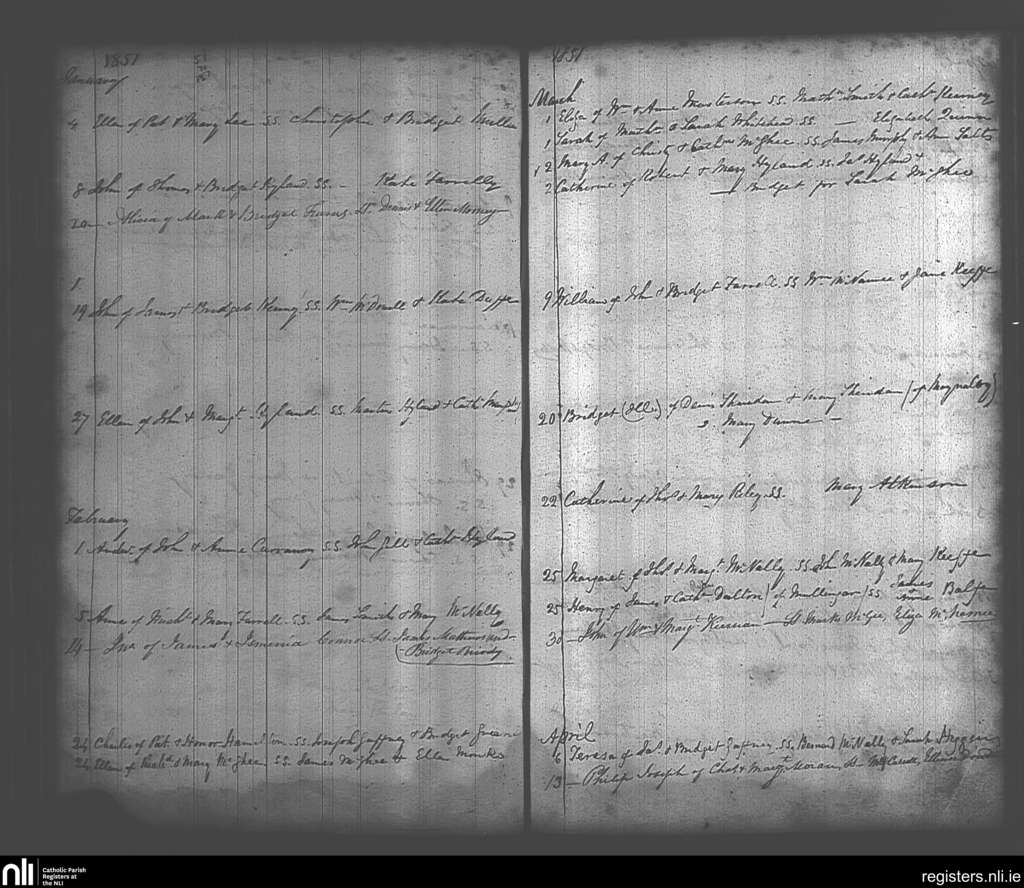 1851
January
4 Ellen of Pat & Mary Lee SS. Christopher & Bridget
8 John of Thomas & Bridget Hyland. SS. - Kate Farrelly
20 — of Mark & Bridget Sp. Dennis & Ellen
1
19 John of James & Bridget Kenny SS. Wm McDonell & Kate Duffe
27 Ellen of John & Margt. Hyland. SS. Martin Hyland & Cath
February
1 Andw. of John & Anne SS. John Gill & Cathe Hyland
5 Anne of Michl & Mary Farrell. SS. James & Mary McNally
14 — Jno. of James & Jemima Connor Sp. Isaac Mathews and
Bridget Briody
24 Charles of Pat. & Honor Hamilton. SS. Joseph Gaffney & Bridget Green
24 Ellen of & Mary McGhee. SS. James McGhee & Ellen Monks
1851
March
1 Eliza of Wm & Anne Masterson SS. Mathw Smith & Cathe Kearney
1 Sarah of Mathw & Sarah Whitehead SS. — Elizabeth Quinn
2 Mary A. of Christy & Cathne McGhee. SS. James Murphy & Ann
2 Catherine of Robert & Mary Hyland SS. Jas Hyland &
— Bridget for Sarah McGhee
9 William of John & Bridget Farrell. SS Wm McNamee & Jane Keeffe
20 Bridget (Ille) of Denis Sheridan & Mary Sheridan (of Moynalvy)
S. Mary Dunne —
22 Catherine of Thos & Mary Riley. SS. Mary Atkinson
25 Margaret of Thos & Margt. McNally. SS. Jhn McNally & Mary Keeffe
25 Henry of James & Cathne Dalton of Mullingar SS James Balfe
30 — John of Wm & Margt Keenan — Sp. Mark McGee, Eliza McNamee
April
6 Teresa of Jas. & Bridget Gaffney. SS. Bernard McNally & Sarah
13 — Philip Joseph of Chas & Margt Moran, Sp
nli
Catholic Parish
Registers at
the NLI
registers.nli.ie